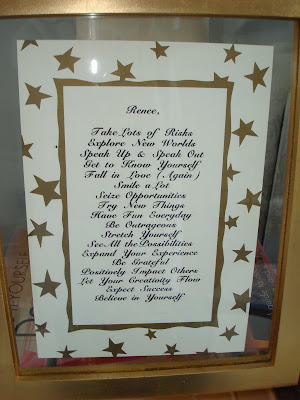 Renee,
Take Lots of Risks
Explore New Worlds
Speak Up & Speak Out
Get to Know Yourself
Fall in Love ( Again )
Smile a Lot
Seize Opportunities
Try New Things
Have Fun Everyday
Be Outrageous
Stretch Yourself
See All the Possibilities
Expand Your Experience
Be Grateful
Positively Impact Others
Let Your Creativity Flow
Expect Success
Believe in Yourself